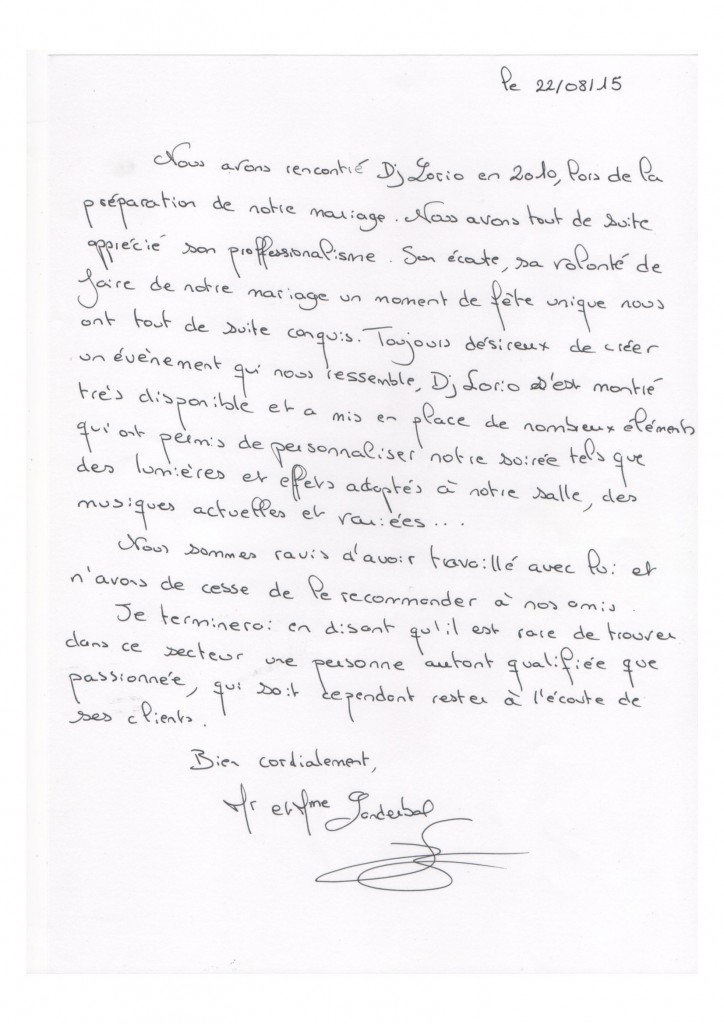 le 22/08/15
Nous avons rencontré Dj Lorio en 2010, lors de la
préparation de notre mariage. Nous avons tout de suite
apprécié son proffessionalisme. Son écoute, sa volonté de
faire de notre mariage un moment de fête unique nous
ont tout de suite conquis. Toujours désireux de créer
un évènement qui nous ressemble, Dj Lorio s'est montré
très disponible et a mis en place de nombreux éléments
qui ont permis de personnaliser notre soirée tels que
des lumières et effets adaptés à notre salle, des
musiques actuelles et variées...
Nous sommes ravis d'avoir travaillé avec lui et
n'avons de cesse de le recommander à nos amis.
Je terminerai en disant qu'il est rare de trouver
dans ce secteur une personne autant qualifiée que
passionnée, qui soit cependant rester à l'écoute de
ses clients.
Bien cordialement,
Mr et Mme